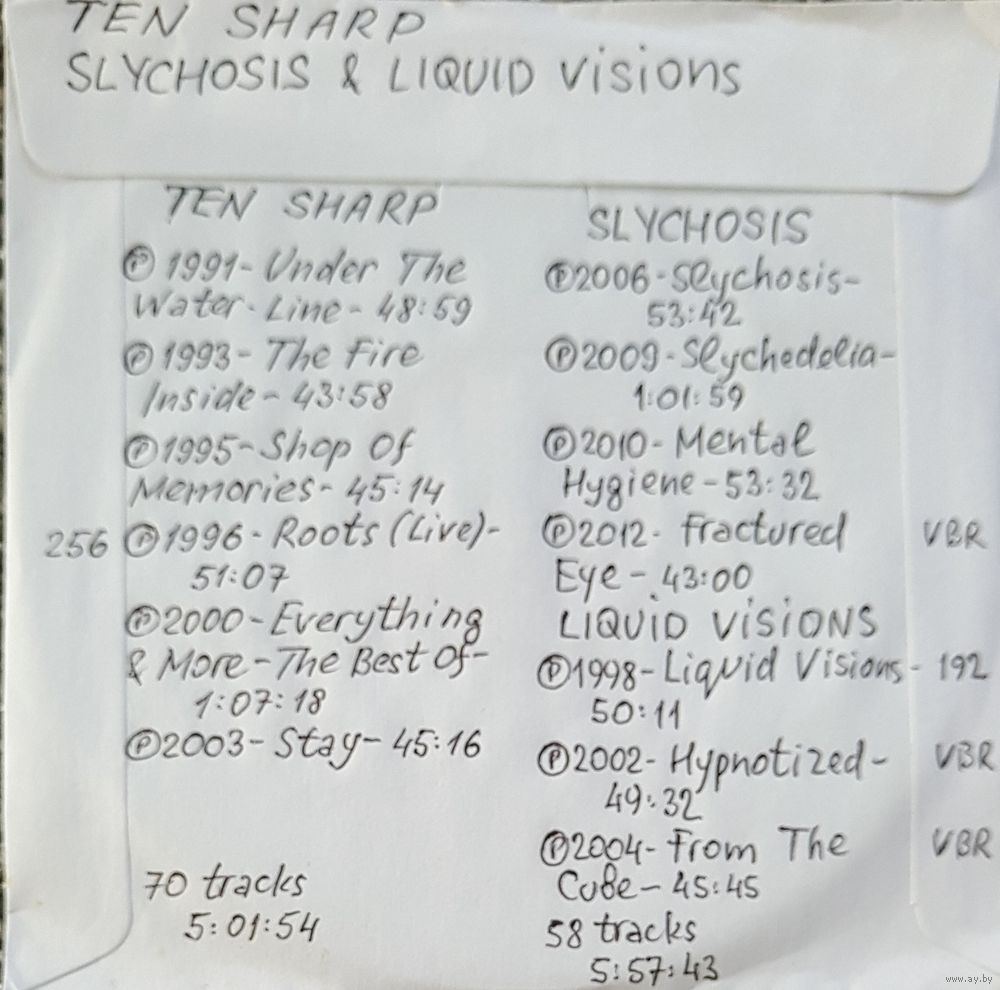 TEN SHARP
SLYCHOSIS & LIQUID Visions
TEN SHARP
Ⓟ 1991- Under The
Water-Line- 48:59
Ⓟ 1993- The Fire
Inside- 43:58
Ⓟ1995-Shop Of
Memories- 45:14
256 Ⓟ1996- Roots (Live)-
51:07
Ⓟ2000-Everything
& More-The Best Of-
1:07:18
Ⓟ2003- Stay- 45:16
70 tracks
5:01:54
SLYCHOSIS
Ⓟ2006-Slychosis-
53:42
Ⓟ2009-Slychedelia-
1:01:59
Ⓟ2010- Mental
Hygiene-53:32
Ⓟ2012- Fractured VBR
Eye- 43:00
LIQUID VISIONS
Ⓟ1998-Liquid Visions- 192
50:11
Ⓟ2002- Hypnotized- VBR
49:32
Ⓟ2004- From The VBR
Cube- 45:45
58 tracks
5:57:43
www.ay.by